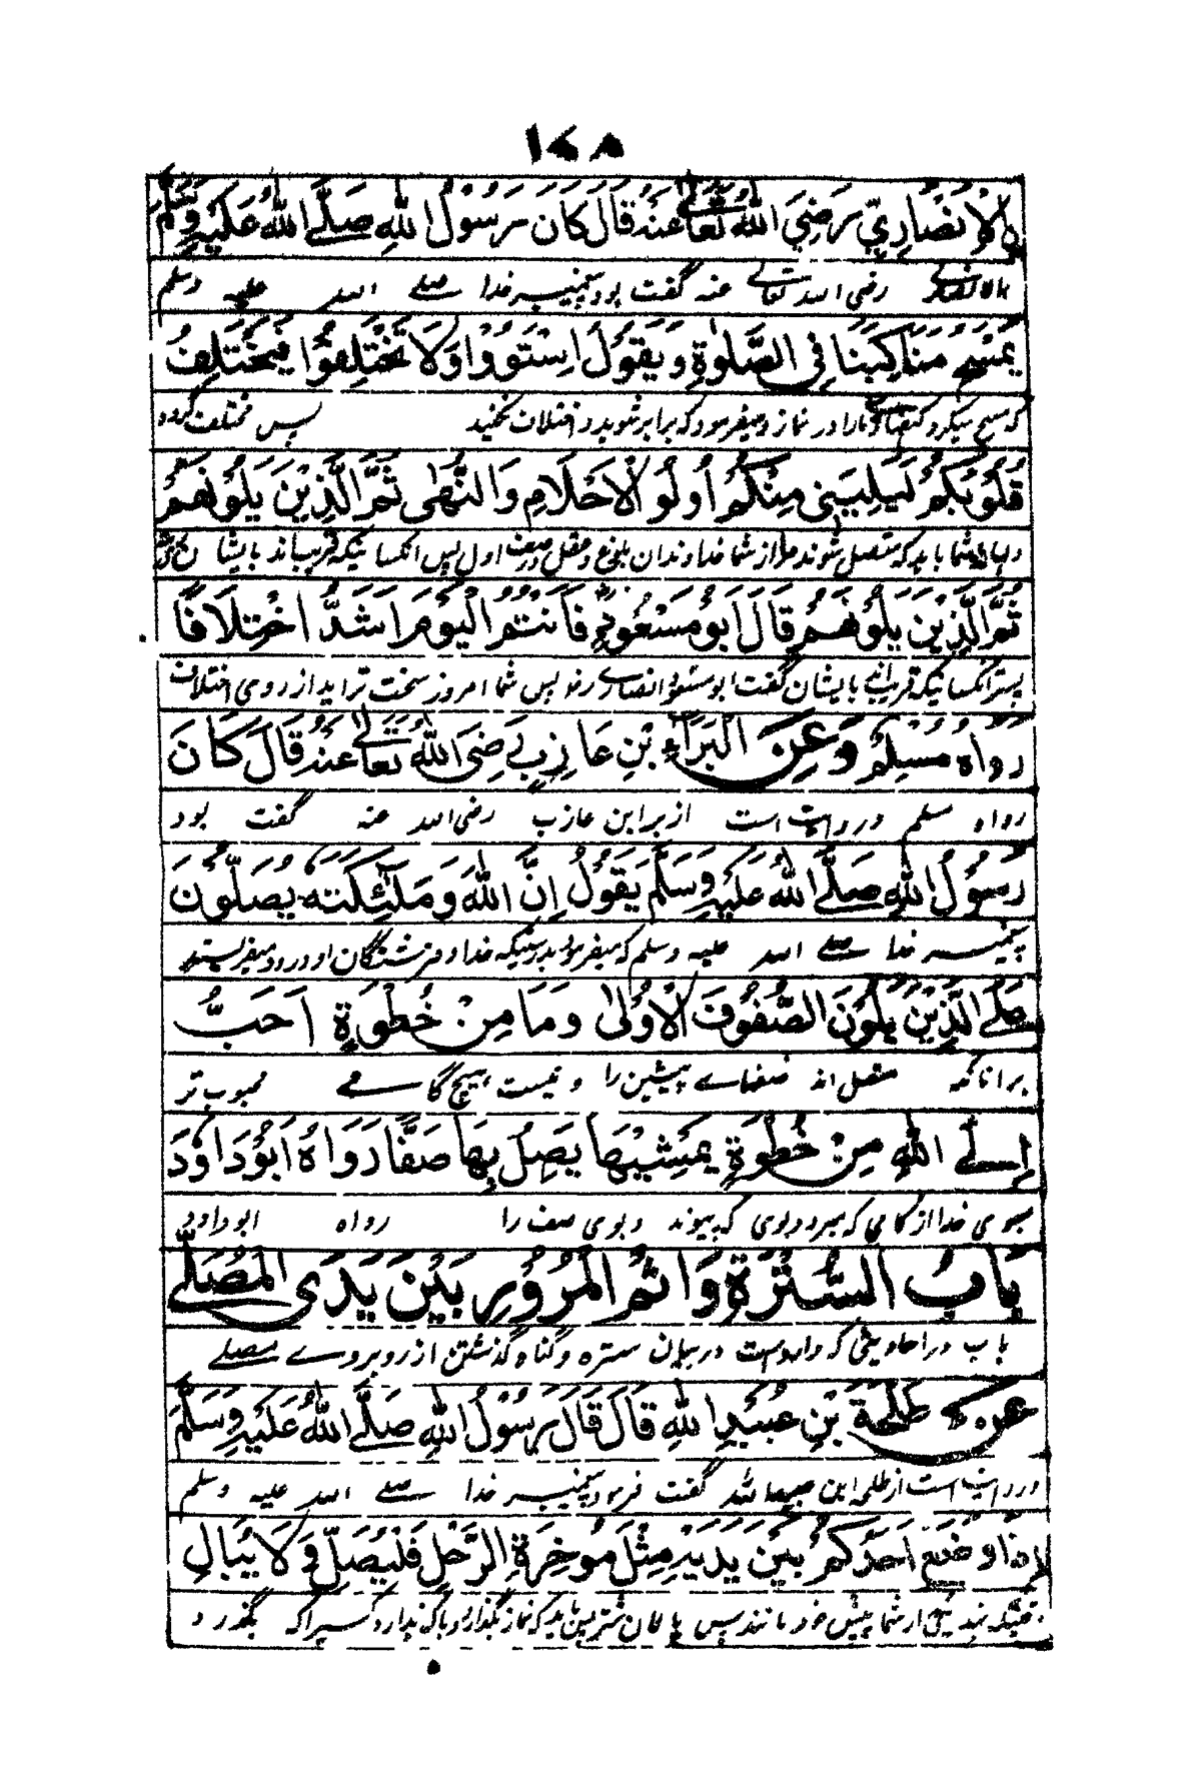 ١٤٨
الانصاري رضي الله تعالى عنه قال كان رسول الله صلى الله عليه وسلم
رضی الله تعالی عنه گفت بود پیغمبر خدا صلی الله علیه وسلم
يمسح مناكبنا في الصلوة ويقول استووا ولا تختلفوا فيختلف
که مسح میکرد ما را در نماز و میفرمود که برابر شوید و اختلاف نکنید پس مختلف گردد
قلوبكم ليليني منكم اولو الاحلام والنهى ثم الذين يلونهم
دلهای شما باید که متصل شوند مرا از شما خداوندان بلوغ و عقل در صف اول پس انکسانیکه قریب اند بایشان
ثم الذين يلونهم قال ابو مسعود فانتم اليوم اشد اختلافا
پستر انکسانیکه قریب اند بایشان گفت ابو مسعود انصاری رض پس شما امروز سخت تر اید از روی اختلاف
رواه مسلم وعن البراء بن عازب رضي الله تعالى عنه قال كان
رواه مسلم وروایت است از برا ابن عازب رضی الله عنه گفت بود
رسول الله صلى الله عليه وسلم يقول ان الله وملئكته يصلون
پیغمبر خدا صلی الله علیه وسلم که میفرمود بدرستیکه خدا و فرشتگان او درود میفرستند
على الذين يلون الصفوف الاولى وما من خطوة احب
برانانکه متصل اند صفهای پیشین را و نیست هیچ گامی محبوب تر
الى الله من خطوة يمشيها يصل بها صفا رواه ابوداود
بسوی خدا از گامی که میرود بوی که پیوند د بوی صف را رواه ابوداود
باب السترة واثم المرور بين يدى المصلى
باب در احادیثی که وارد است در بیان ستره و گناه گذشتن از روبروے مصلے
عن طلحة بن عبيد الله قال قال رسول الله صلى الله عليه وسلم
وروایت است از طلحه ابن عبید الله گفت فرمود پیغمبر خدا صلی الله علیه وسلم
اذا وضع احدكم بين يديه مثل موخرة الرحل فليصل ولا يبال
وقتیکه نهد یکی از شما پیش خود مانند پس پالان شتر پس باید که نماز بگذارد و باک ندارد کسیرا که بگذرد